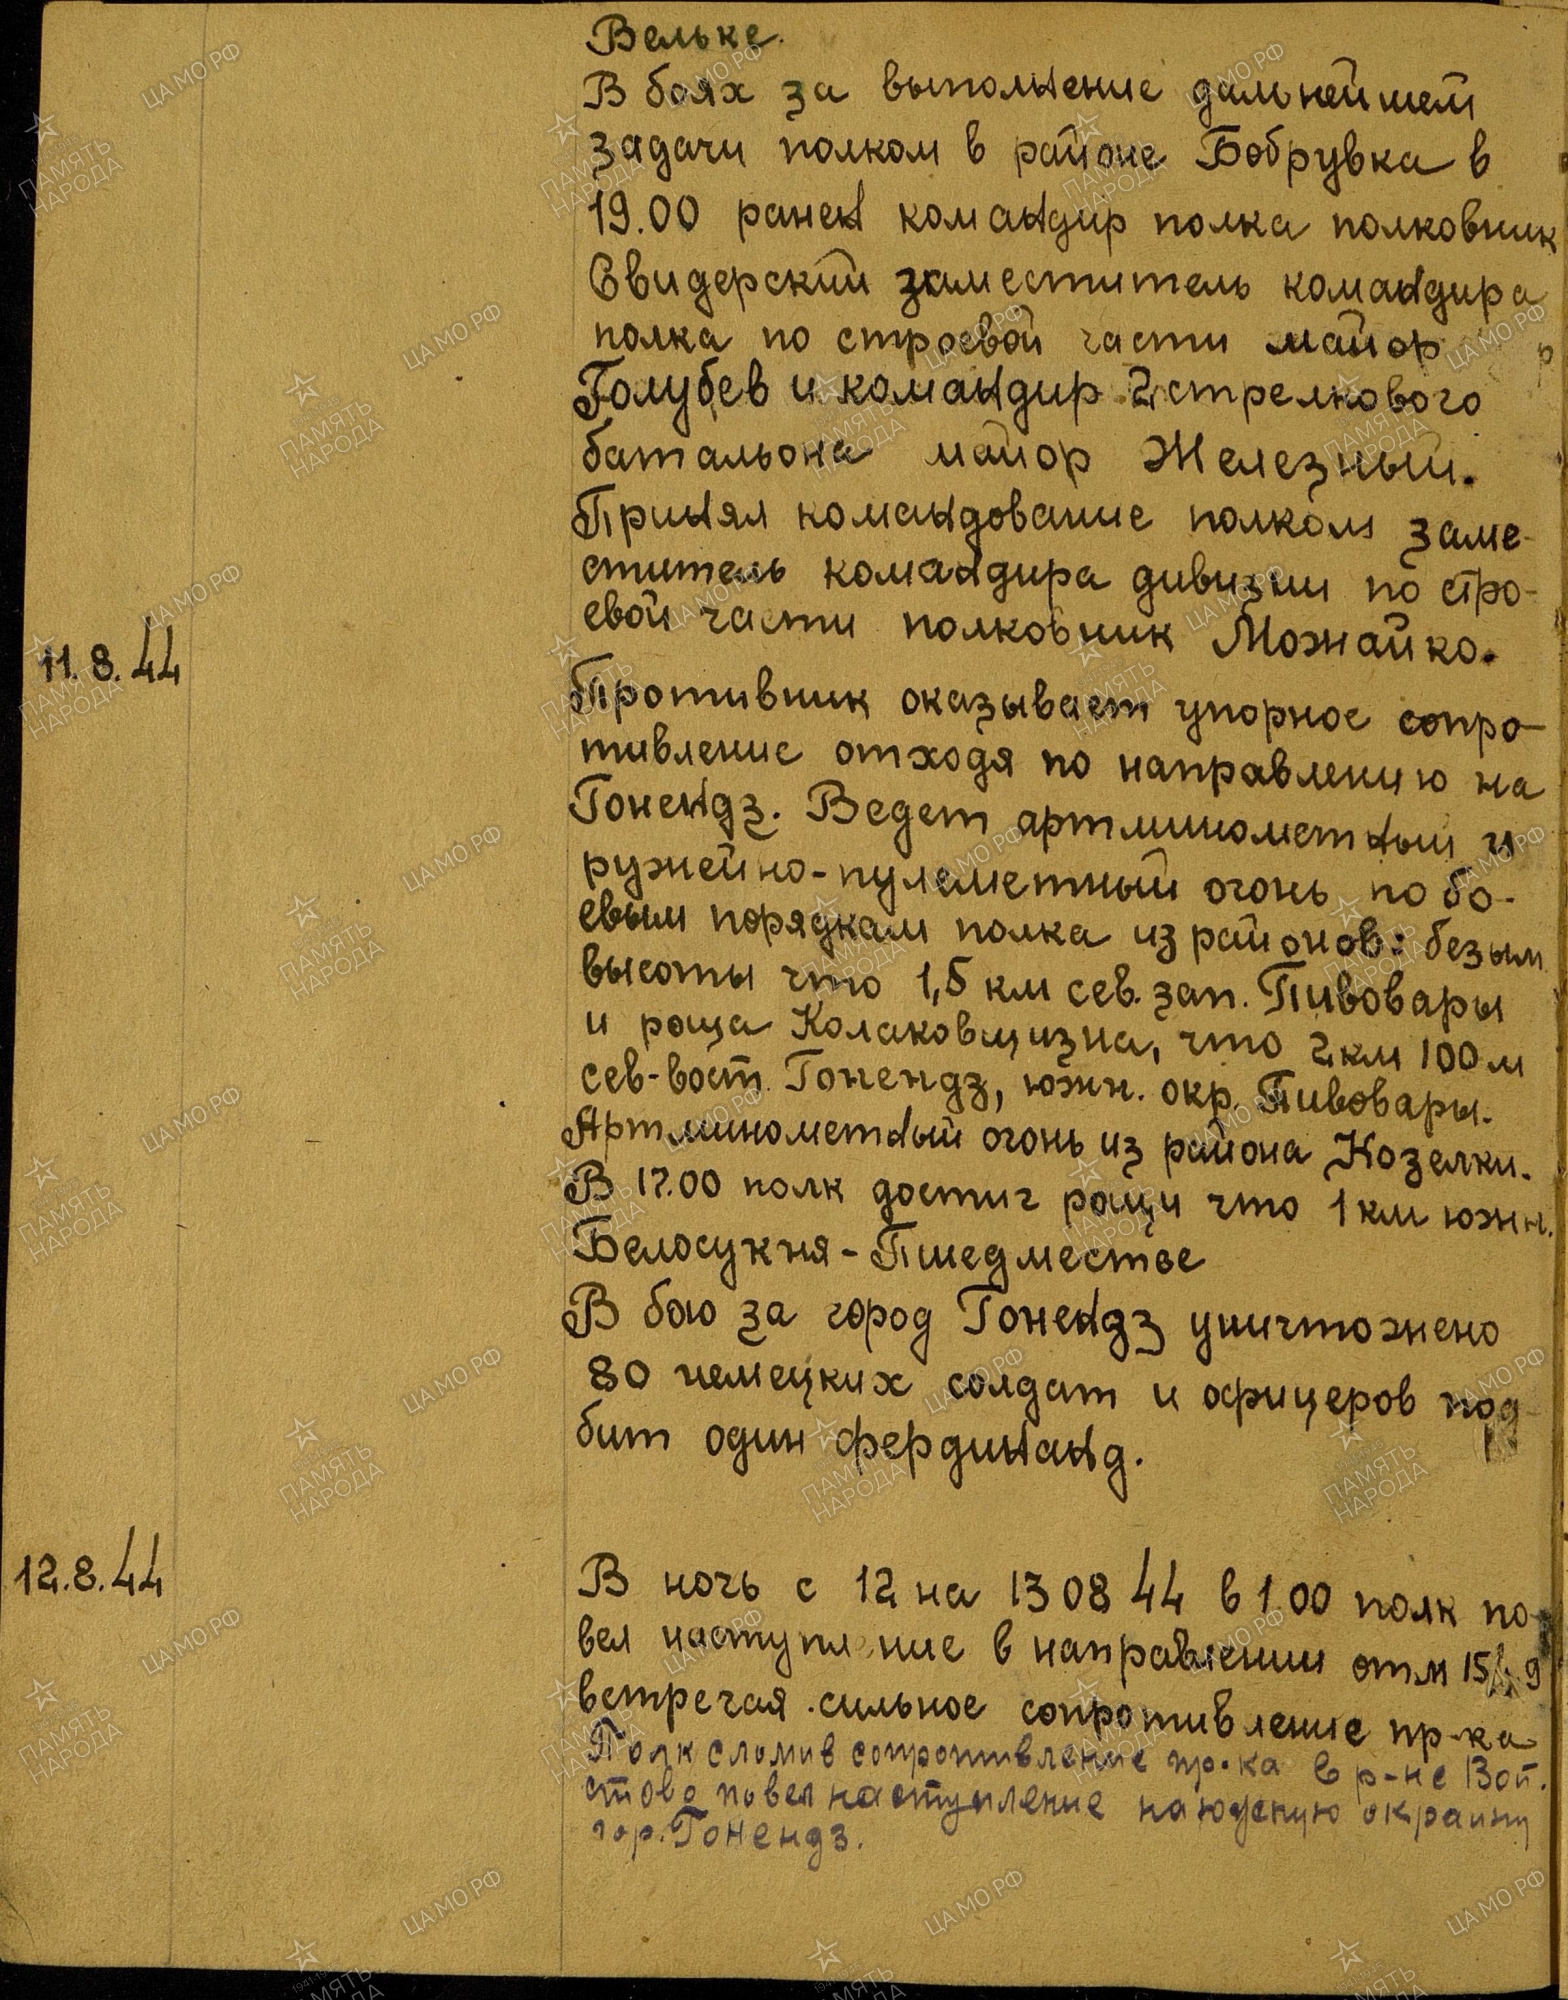 Вельке.
В боях за выполнение дальнейшей
задачи полком в районе Бобрувка в
19.00 ранен командир полка полковник
Свидерский заместитель командира
полка по строевой части майор
Голубев и командир 2 стрелкового
батальона майор Железный.
Принял командование полком заме-
ститель командира дивизии по стро-
евой части полковник Можайко.
11.8.44
Противник оказывает упорное сопро-
тивление отходя по направлению на
Гонендз. Ведет артминометный и
ружейно-пулеметный огонь по бо-
евым порядкам полка из районов: безым
высоты что 1,5 км сев. зап. Пивовары
и роща Колаковщизна, что 2 км 100 м
сев-вост. Гонендз, южн. окр. Пивовары.
Артминометный огонь из района Козелки.
В 17.00 полк достиг рощи что 1 км южн.
Белосукня-Пшедместье
В бою за город Гонендз уничтожено
80 немецких солдат и офицеров под
бит один фердинанд.
12.8.44
В ночь с 12 на 13 08 44 в 1.00 полк по-
вел наступление в направлении отм
встречая сильное сопротивление пр-ка
Полк сломив сопротивление пр-ка в р-не Вой.
стово повел наступление на южную окраину
гор. Гонендз.
ЦА МО РФ
ПАМЯТЬ
НАРОДА